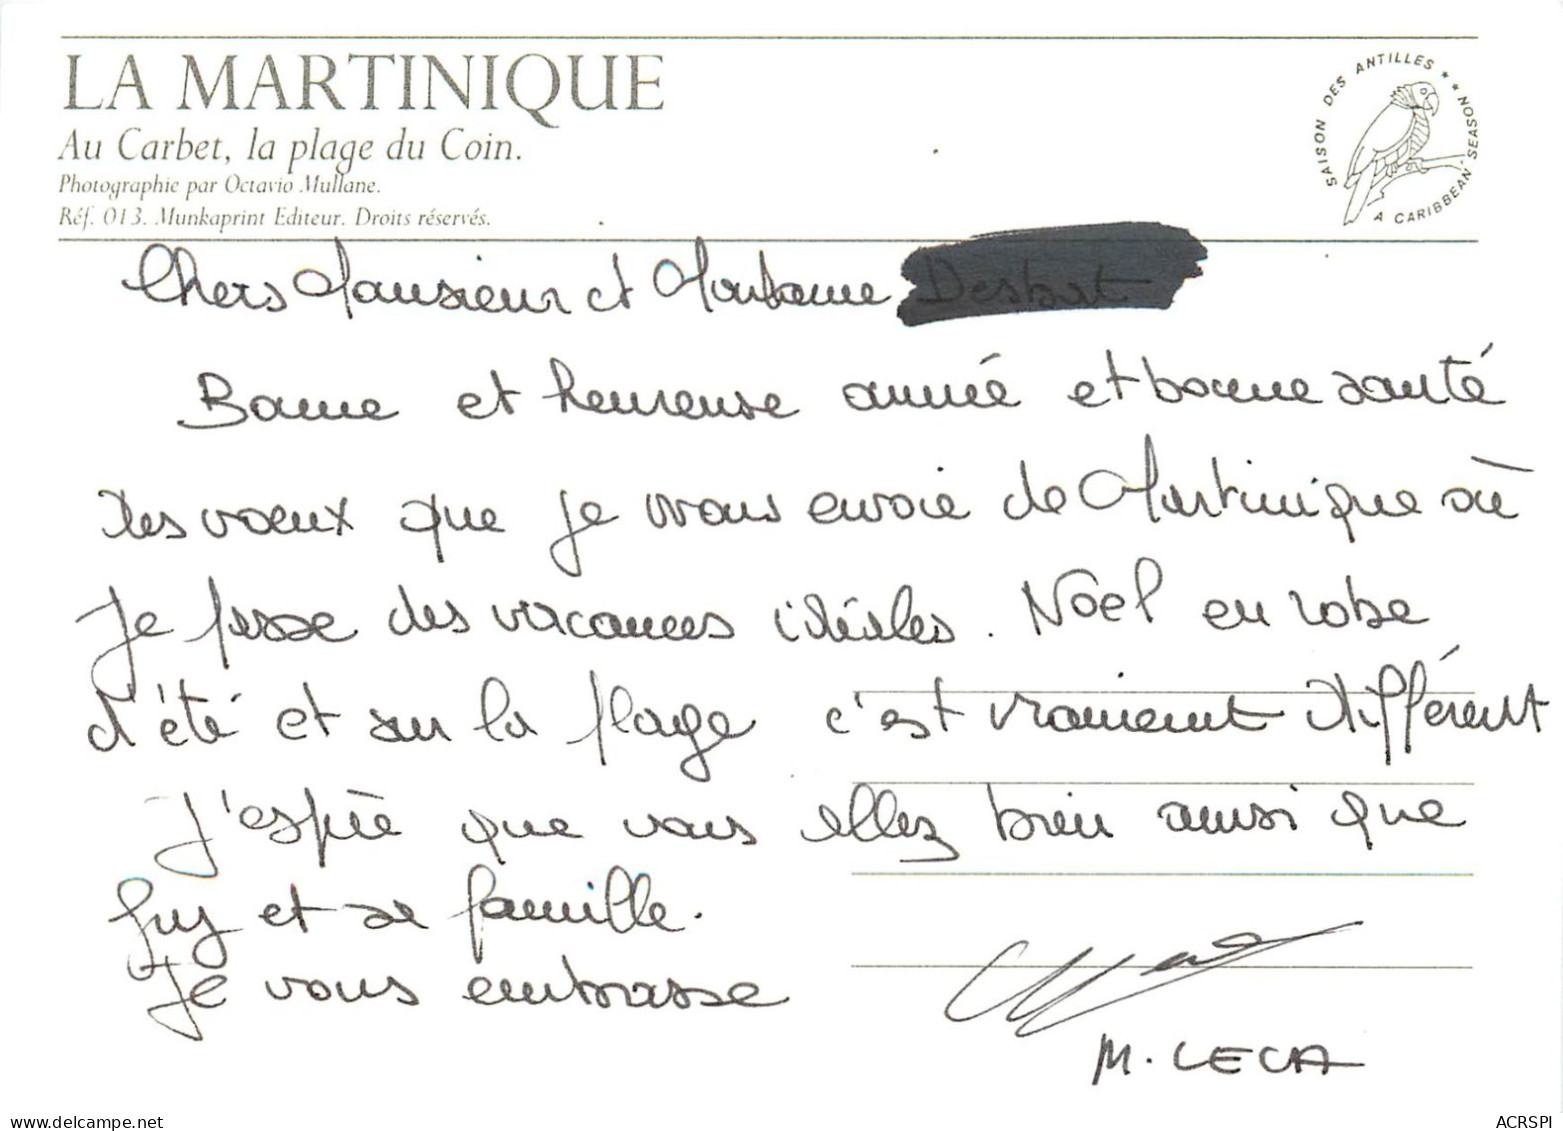 LA MARTINIQUE
Au Carbet, la plage du Coin.
Photographie par Octavio Mullane.
Réf. 013. Munkaprint Editeur. Droits réservés.
SAISON DES ANTILLES ★★ A CARIBBEAN SEASON
Chers Monsieur et Madame
Bonne et heureuse année et bonne santé
des voeux que je vous envoie de Martinique où
je passe des vacances idéales. Noël en robe
d'été et sur la plage c'est vraiment différent
J'espère que vous allez bien ainsi que
Guy et sa famille.
Je vous embrasse
M. LECA
www.delcampe.net
ACRSPI